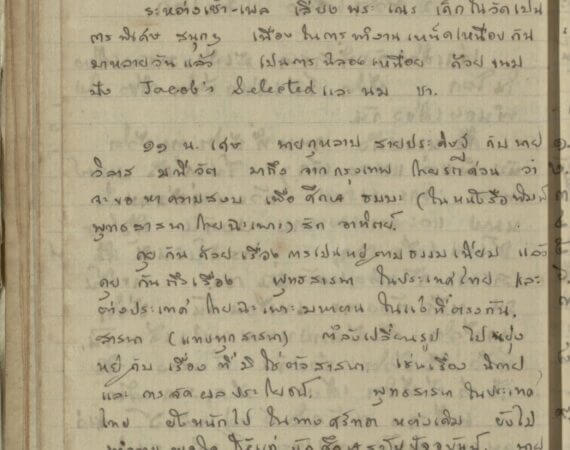 ระหว่างเช้า-เพล เลี้ยง พระ เณร เด็กในวัดเป็น
การพิเศษ สนุกๆ เนื่องในการทำงานเหน็ดเหนื่อยกัน
มาหลายวันแล้ว เป็นการฉลองเหนื่อย ด้วยขนม
ปัง Jacob's Selected และ นม ชา.
๑๑ น. เศษ นายกุหลาบ สายประดิษฐ์ กับนาย
วิลาส มณีวัต มาถึง จากกรุงเทพ โดยรถด่วน ว่า
จะขอหาความสงบ เพื่อศึกษา ธรรมะ (ในหนังสือพิมพ์
พุทธสาสนาโดยฉะเพาะ) สัก อาทิตย์.
คุยกันด้วยเรื่องการเป็นหยู่ตามธรรมเนียม แล้ว
คุยกันถึงเรื่อง พุทธสาสนา ในประเทศไทย และ
ต่างประเทศ โดยฉะเพาะมหายาน ในแง่ที่ตรงกัน.
สาสนา (แทบทุกสาสนา) กำลังเปลี่ยนรูป ไปยุ่ง
หยู่กับเรื่อง ที่มิใช่ตัวสาสนา เช่นเรื่อง นิกาย
และ การ ผลประโยชน์. พุทธสาสนาในประเทศ
ไทย ยังหนักไปในทางศรัทธา หย่างเดิม ยังไม่
พอใจ ให้แก่ นักศึกษาสมัยปัจจุบันนี้. นาย